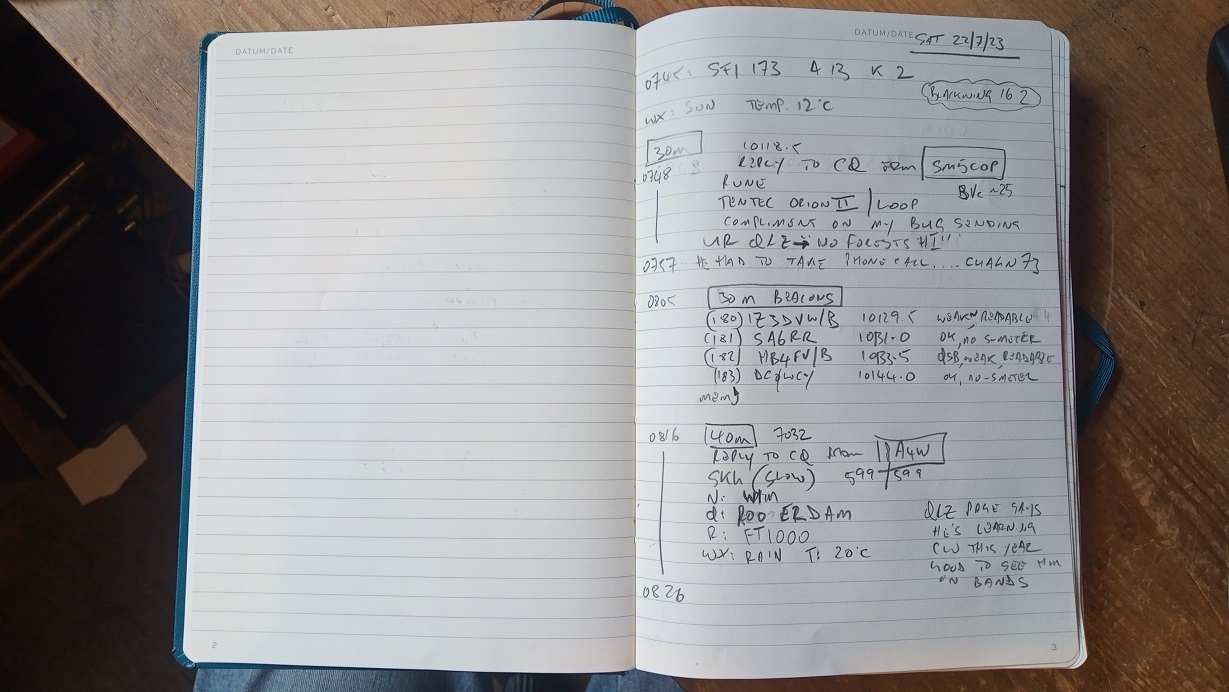 DATUM/DATE
2
DATUM/DATE SAT 22/7/23
0745: SFI 173 A 13 K 2
BLACKWING 16.2
WX: SUN TEMP. 12°C
30m 10118.5
0748 REPLY TO CQ FROM SM5COP
RUNE BUG ~25
TENTEC ORION II / LOOP
COMPLIMENT ON MY BUG SENDING
UR QLZ → "NO FORESTS HI"
0757 HE HAD TO TAKE PHONE CALL.... 73
0805 30m BEACONS
(180) IZ3DVW/B 10129.5 WEAK, READABLE
(181) SA6RR 10131.0 OK, NO S-METER
(182) HB4FV/B 10133.5 QSB, WEAK, READABLE
(183) DC0WCY 10144.0 OK, NO-SMETER
mem
0816 40m 7032
REPLY TO CQ FROM A4W
SKH (SLOW) 599 599
N: WIM
Q: ROOSERDAM QLZ PAGE SAYS
R: FT1000 HE'S LEARNING
WX: RAIN T: 20°C CW THIS YEAR
GOOD TO SEE HIM
ON BANDS
0826
3